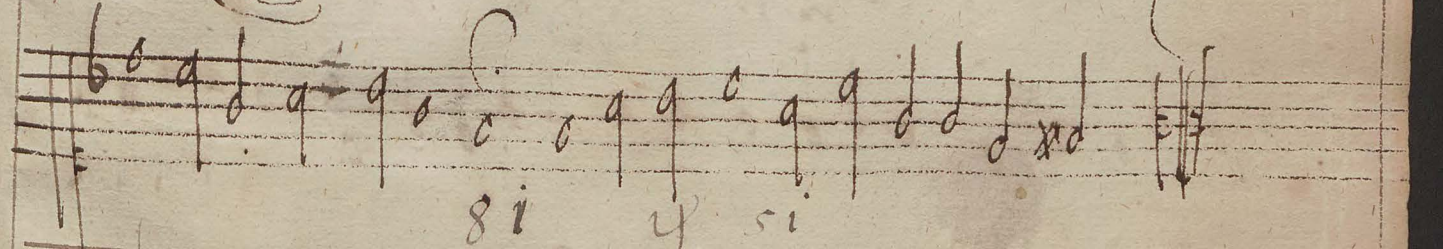 8 i 4 5 i